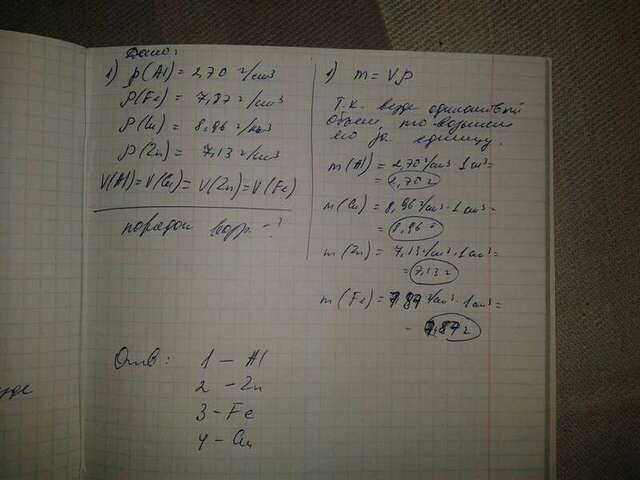 Дано:
1) ρ(Al) = 2,70 г/см³
ρ(Fe) = 7,87 г/см³
ρ(Cu) = 8,96 г/см³
ρ(Zn) = 7,13 г/см³
V(Al)=V(Cu)=V(Zn)=V(Fe)
порядок возр -?
1) m = Vρ
Т.к. везде одинаковый
объем, то возьмем
его за единицу.
m(Al) = 2,70 г/см³ · 1 см³ =
= 2,70 г
m(Cu) = 8,96 г/см³ · 1 см³ =
= 8,96 г
m(Zn) = 7,13 г/см³ · 1 см³ =
= 7,13 г
m(Fe) = 7,87 г/см³ · 1 см³ =
= 7,87 г
Отв: 1 – Al
2 – Zn
3 – Fe
4 – Cu